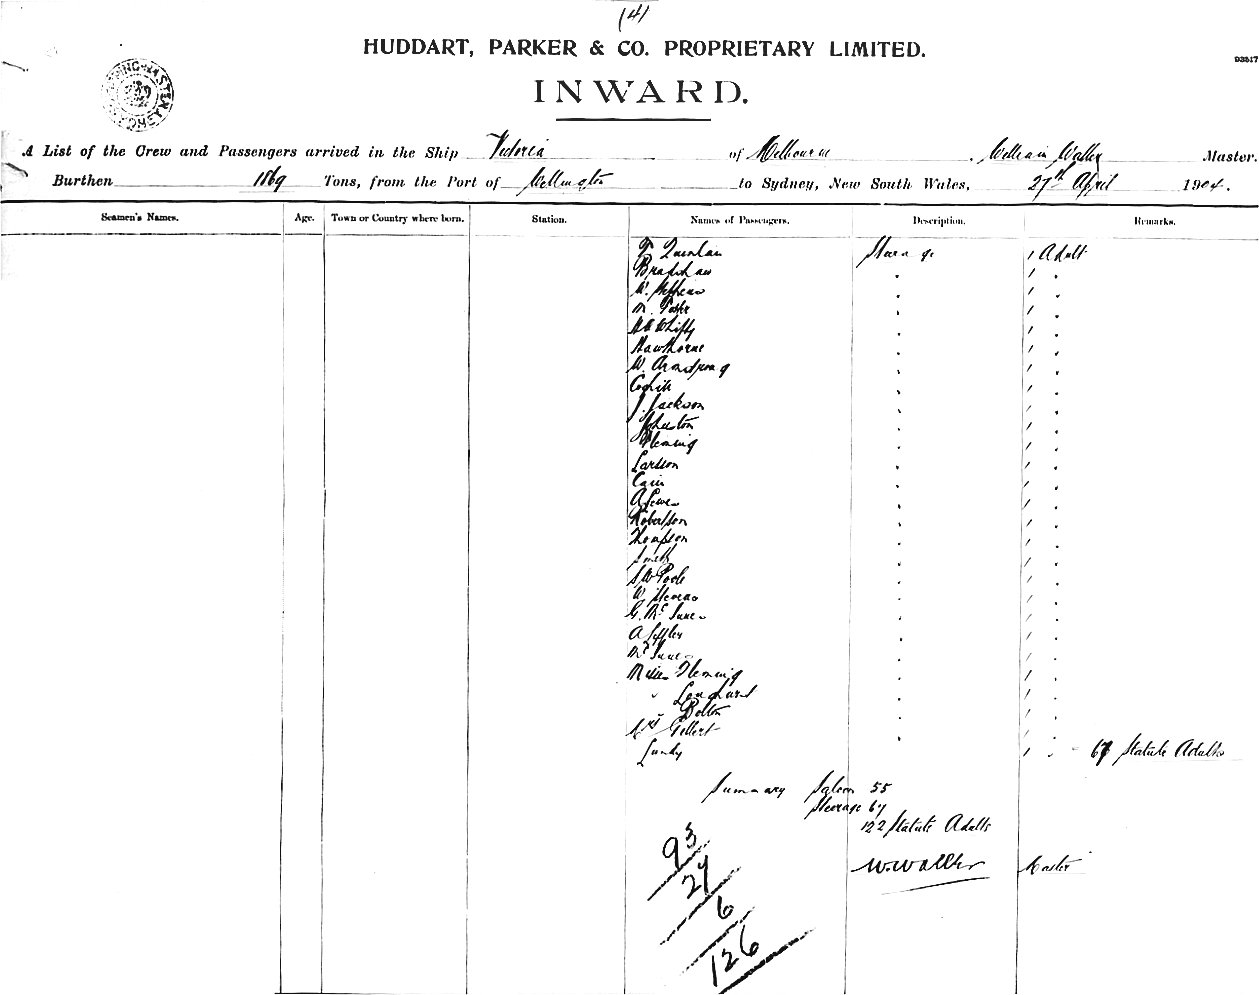 (4)
HUDDART, PARKER & CO. PROPRIETARY LIMITED.
93517
INWARD.
A List of the Crew and Passengers arrived in the Ship Victoria of Melbourne, William Waller Master.
Burthen 1869 Tons, from the Port of Wellington to Sydney, New South Wales, 27th April 1904.
Seamen's Names. Age. Town or Country where born. Station. Names of Passengers. Description. Remarks.
Quinlan Steerage 1 Adult
Bradshaw " 1 "
W. " 1 "
M. Foster " 1 "
" 1 "
Hawthorne " 1 "
W. Armstrong " 1 "
" 1 "
J. Jackson " 1 "
Johnston " 1 "
Fleming " 1 "
Larsson " 1 "
Cain " 1 "
A " 1 "
Robertson " 1 "
Thompson " 1 "
Smith " 1 "
S W Poole " 1 "
W Stevens " 1 "
G. Mc " 1 "
A " 1 "
" 1 "
Miss Fleming " 1 "
" " 1 "
" Bolton " 1 "
Mrs Gellert " 1 "
Lundy " 1 " 67 Statute Adults
Summary Saloon 55
Steerage 67
122 Statute Adults
W. Waller Master
93
27
6
126